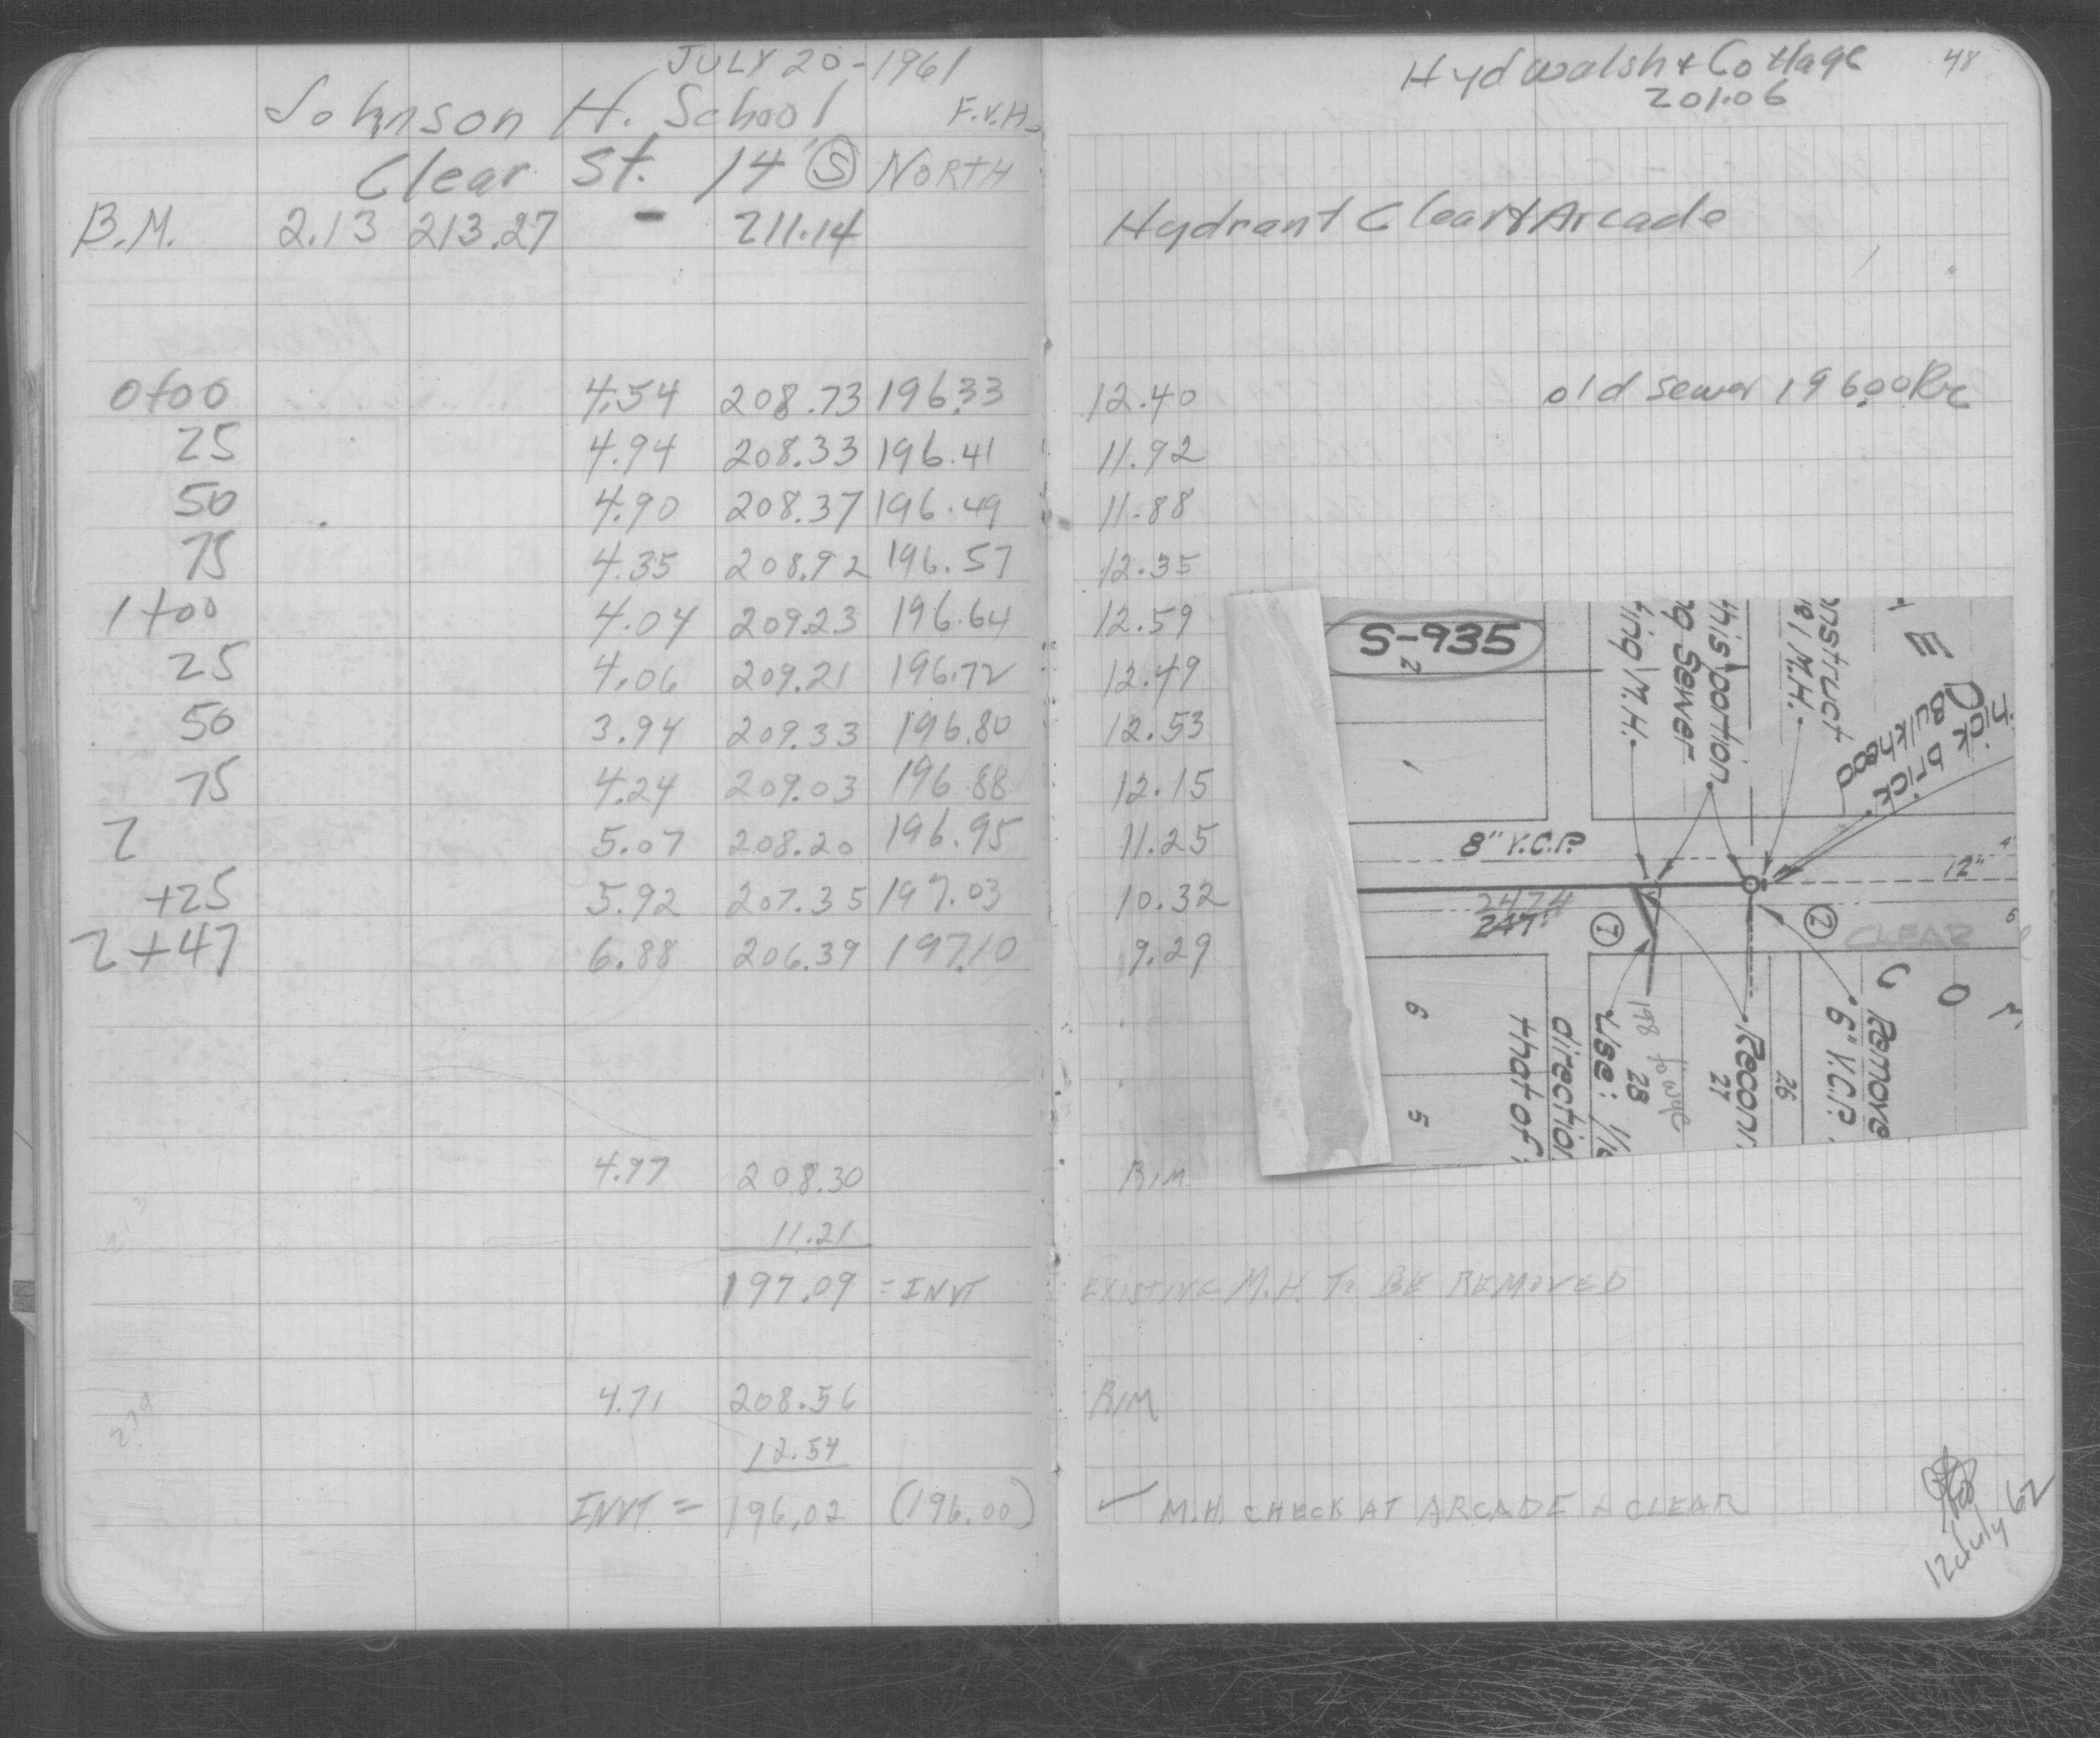 JULY 20-1961
Johnson H. School F.V.H.
Clear St. 14' Ⓢ NORTH
B.M. 2.13 213.27 - 211.14
0+00 4.54 208.73 196.33
25 4.94 208.33 196.41
50 4.90 208.37 196.49
75 4.35 208.92 196.57
1+00 4.04 209.23 196.64
25 4.06 209.21 196.72
50 3.94 209.33 196.80
75 4.24 209.03 196.88
2 5.07 208.20 196.95
+25 5.92 207.35 197.03
2+47 6.88 206.39 197.10
4.97 208.30
11.21
197.09 = INVT
4.71 208.56
12.54
INVT = 196.02 (196.00)
Hyd Walsh + Cottage 48
201.06
Hydrant Clear + Arcade
12.40 old sewer 196.00 Rec
11.92
11.88
12.35
12.59
12.49
12.53
12.15
11.25
10.32
9.29
S-935
2
ting M.H.
ng Sewer
this portion
onstruct
1 M.H.
hick brick
Bulkhead
8" V.C.P.
12"
2474
247'
① ②
CLEAR
6
5
that of
direction
Use:
28
198 to wye
Reconn
27
26
6" V.C.P.
Remove
RIM
EXISTING M.H. TO BE REMOVED
RIM
✓ M.H. CHECK AT ARCADE & CLEAR
12 July 62